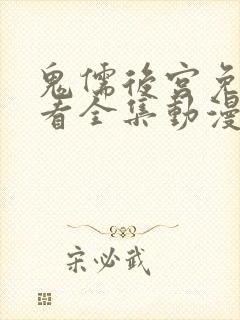 鬼儒後宮免
看全集動漫
宋必武